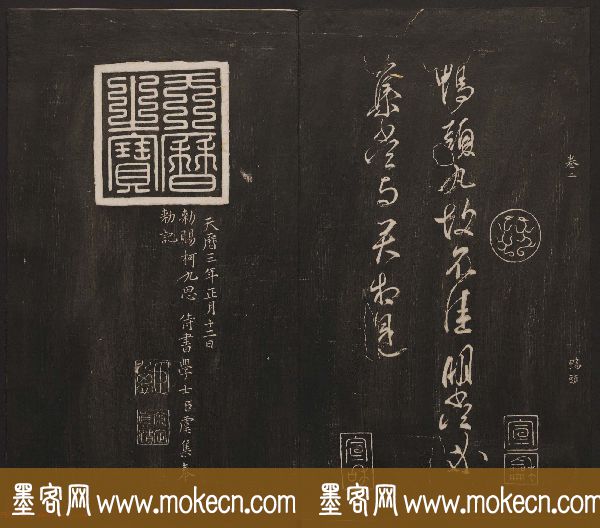 卷二
鴨頭
鴨頭丸故不佳明當必
集當与君相見
宣和
天曆之寶
天曆三年正月十二日
勑賜柯九思侍書學士臣虞集奉
勑記
墨客网 www.mokecn.com
墨客网 www.mokecn.com